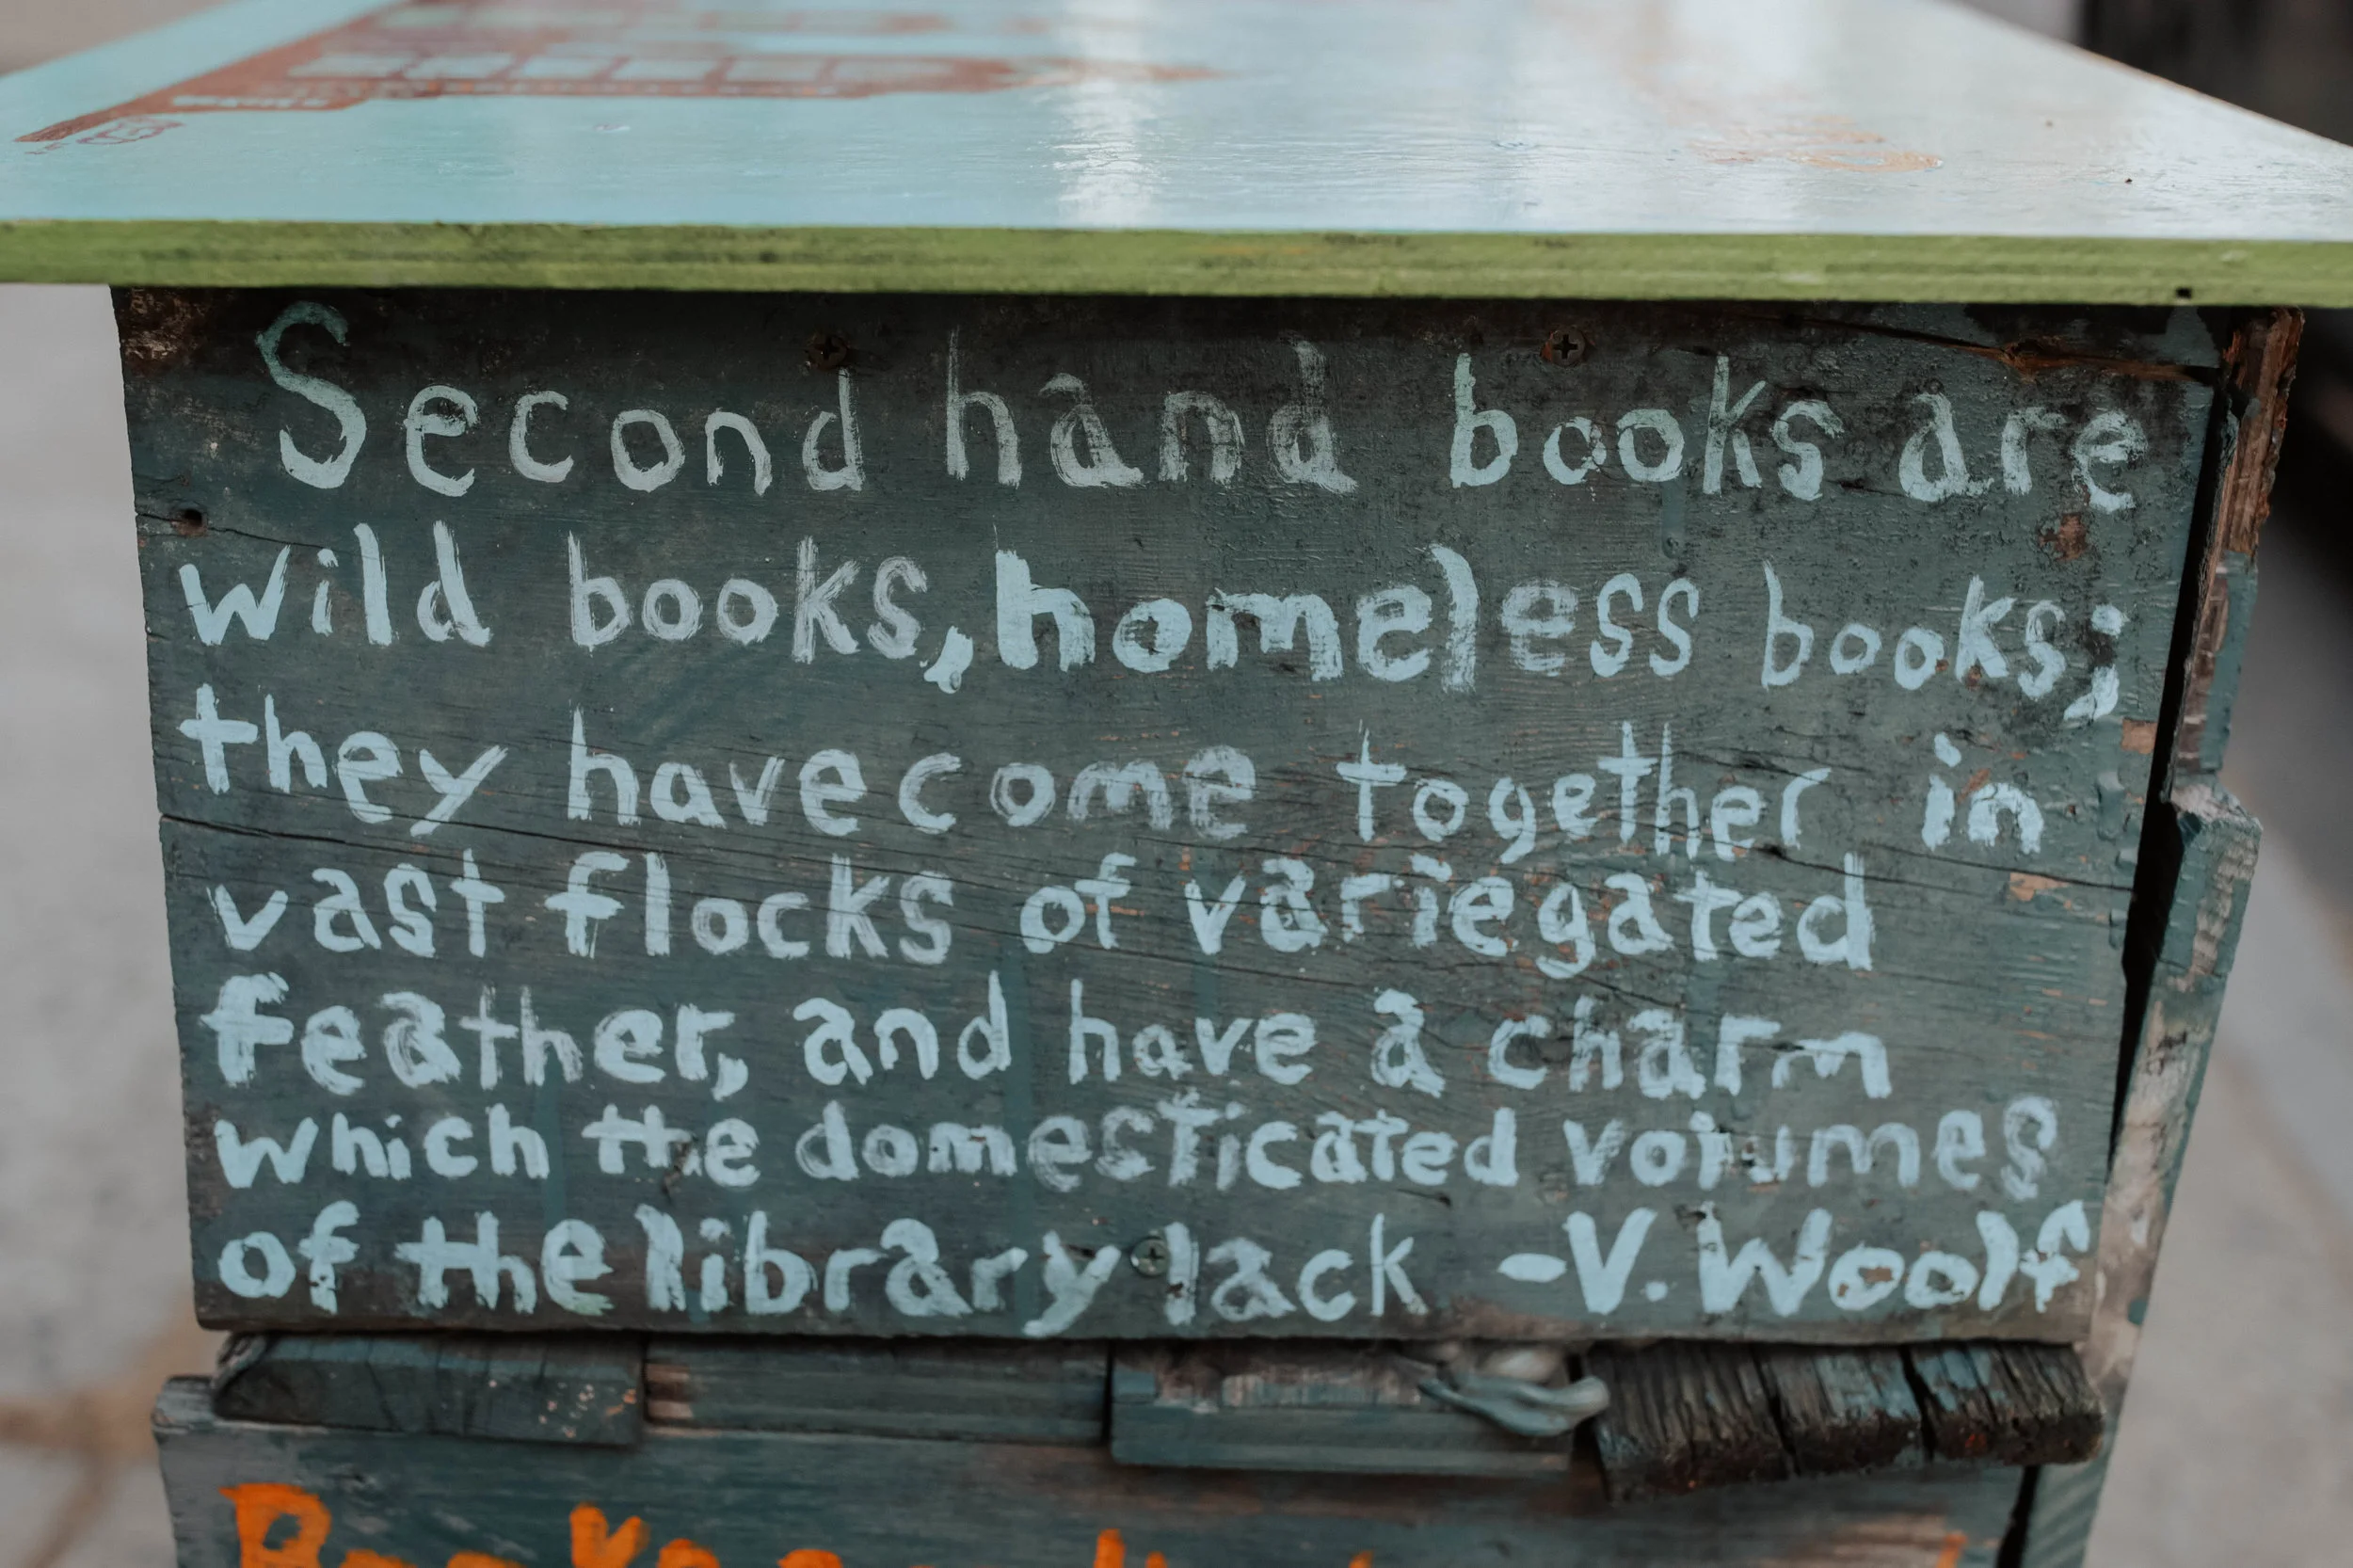 Second hand books are
wild books, homeless books;
they have come together in
vast flocks of variegated
feather, and have a charm
which the domesticated volumes
of the library lack - V. Woolf